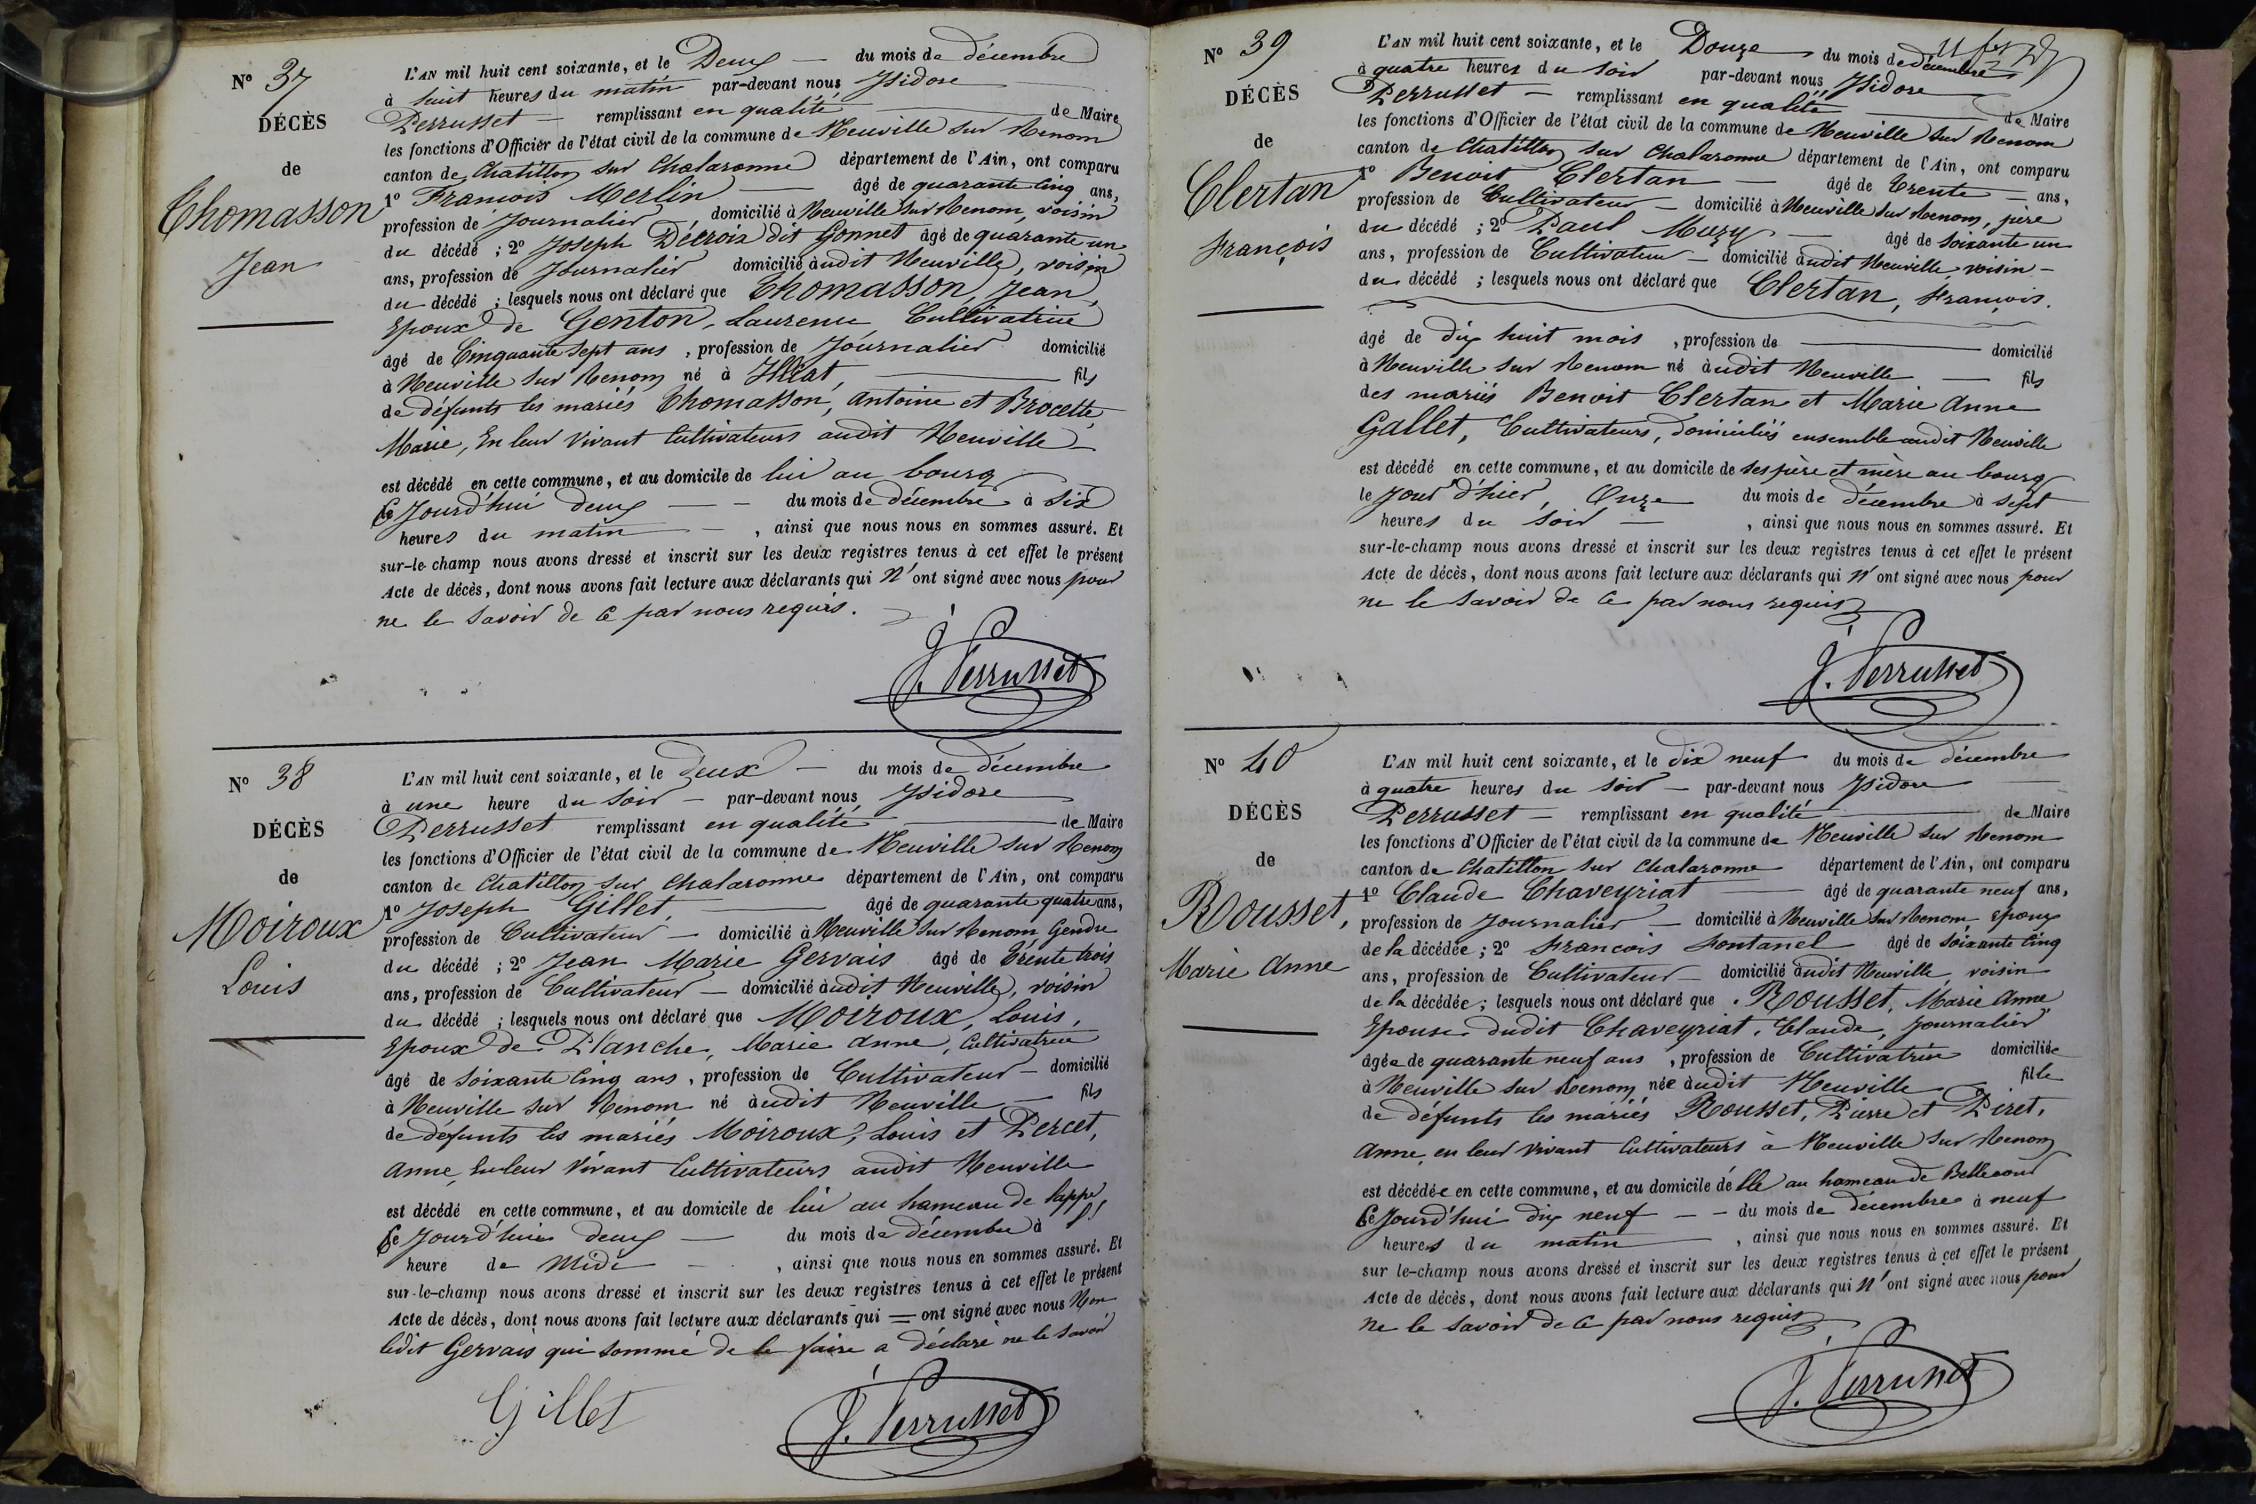 N° 37
DÉCÈS
de
Thomasson
Jean
L'AN mil huit cent soixante, et le Deux du mois de décembre
à huit heures du matin par-devant nous, Isidore
Perrusset remplissant en qualité de Maire
les fonctions d'Officier de l'état civil de la commune de Neuville sur Renom
canton de Chatillon sur Chalaronne département de l'Ain, ont comparu
1° Francois Merlin âgé de quarante cinq ans,
profession de Journalier, domicilié à Neuville sur Renom, voisin
du décédé ; 2° Joseph Décroix dit Gonnet âgé de quarante un
ans, profession de Journalier domicilié audit Neuville, voisin
du décédé ; lesquels nous ont déclaré que Thomasson, Jean,
Epoux de Genton, Laurence, Cultivatrice
âgé de Cinquante sept ans, profession de Journalier domicilié
à Neuville sur Renom né à Illiat, fils
de défunts les mariés Thomasson, Antoine et Brocette,
Marie, En leur Vivant Cultivateurs audit Neuville
est décédé en cette commune, et au domicile de lui au bourg
Ce Jourd'hui deux du mois de décembre à Six
heures du matin, ainsi que nous nous en sommes assuré. Et
sur-le-champ nous avons dressé et inscrit sur les deux registres tenus à cet effet le présent
Acte de décès, dont nous avons fait lecture aux déclarants qui n'ont signé avec nous pour
ne le savoir de ce par nous requis.
J. Perrusset
N° 38
DÉCÈS
de
Moiroux
Louis
L'AN mil huit cent soixante, et le Deux du mois de décembre
à une heure du soir par-devant nous, Isidore
Perrusset remplissant en qualité de Maire
les fonctions d'Officier de l'état civil de la commune de Neuville sur Renom
canton de Chatillon sur Chalaronne département de l'Ain, ont comparu
1° Joseph Gillet, âgé de quarante quatre ans,
profession de Cultivateur domicilié à Neuville sur Renom Gendre
du décédé ; 2° Jean Marie Gervais âgé de Trente trois
ans, profession de Cultivateur domicilié audit Neuville, voisin
du décédé ; lesquels nous ont déclaré que Moiroux, Louis,
Epoux de Planche, Marie Anne, Cultivatrice
âgé de soixante cinq ans, profession de Cultivateur domicilié
à Neuville sur Renom né audit Neuville fils
de défunts les mariés Moiroux, Louis et Percet,
Anne, En leur Vivant Cultivateurs audit Neuville
est décédé en cette commune, et au domicile de lui au hameau de
Ce Jourd'hui deux du mois de décembre à
heure de Midi, ainsi que nous nous en sommes assuré. Et
sur-le-champ nous avons dressé et inscrit sur les deux registres tenus à cet effet le présent
Acte de décès, dont nous avons fait lecture aux déclarants qui = ont signé avec nous Non
ledit Gervais qui sommé de le faire a déclaré ne le savoir
Gillet
J. Perrusset
N° 39
DÉCÈS
de
Clertan
François
L'AN mil huit cent soixante, et le Douze du mois de décembre
à quatre heures du soir par-devant nous, Isidore
Perrusset remplissant en qualité de Maire
les fonctions d'Officier de l'état civil de la commune de Neuville sur Renom
canton de Chatillon sur Chalaronne département de l'Ain, ont comparu
1° Benoit Clertan âgé de Trente ans,
profession de Cultivateur domicilié à Neuville sur Renom, père
du décédé ; 2° Paul Mury âgé de soixante un
ans, profession de Cultivateur domicilié audit Neuville, voisin
du décédé ; lesquels nous ont déclaré que Clertan, François.
âgé de dix huit mois, profession de domicilié
à Neuville sur Renom né audit Neuville fils
des mariés Benoit Clertan et Marie Anne
Gallet, Cultivateurs, domiciliés ensemble audit Neuville
est décédé en cette commune, et au domicile de ses père et mère au bourg
le Jour d'hier, Onze du mois de décembre à sept
heures du soir, ainsi que nous nous en sommes assuré. Et
sur-le-champ nous avons dressé et inscrit sur les deux registres tenus à cet effet le présent
Acte de décès, dont nous avons fait lecture aux déclarants qui n'ont signé avec nous pour
ne le savoir de ce par nous requis
J. Perrusset
N° 40
DÉCÈS
de
Rousset,
Marie Anne
L'AN mil huit cent soixante, et le dix neuf du mois de décembre
à quatre heures du soir par-devant nous Isidore
Perrusset remplissant en qualité de Maire
les fonctions d'Officier de l'état civil de la commune de Neuville sur Renom
canton de Chatillon sur Chalaronne département de l'Ain, ont comparu
1° Claude Chaveyriat âgé de quarante neuf ans,
profession de Journalier domicilié à Neuville sur Renom, Epoux
de la décédée ; 2° Francois Fontanel âgé de soixante cinq
ans, profession de Cultivateur domicilié audit Neuville, voisin
de la décédée ; lesquels nous ont déclaré que Rousset, Marie Anne
Epouse dudit Chaveyriat, Claude, Journalier
âgée de quarante neuf ans, profession de Cultivatrice domiciliée
à Neuville sur Renom née audit Neuville fille
de défunts les mariés Rousset, Pierre et Piret,
Anne, en leur vivant Cultivateurs à Neuville sur Renom
est décédée en cette commune, et au domicile d'elle au hameau de Bellecour
Ce Jourd'hui dix neuf du mois de décembre à neuf
heures du matin, ainsi que nous nous en sommes assuré. Et
sur le-champ nous avons dressé et inscrit sur les deux registres tenus à cet effet le présent
Acte de décès, dont nous avons fait lecture aux déclarants qui n'ont signé avec nous pour
ne le savoir de ce par nous requis
J. Perrusset